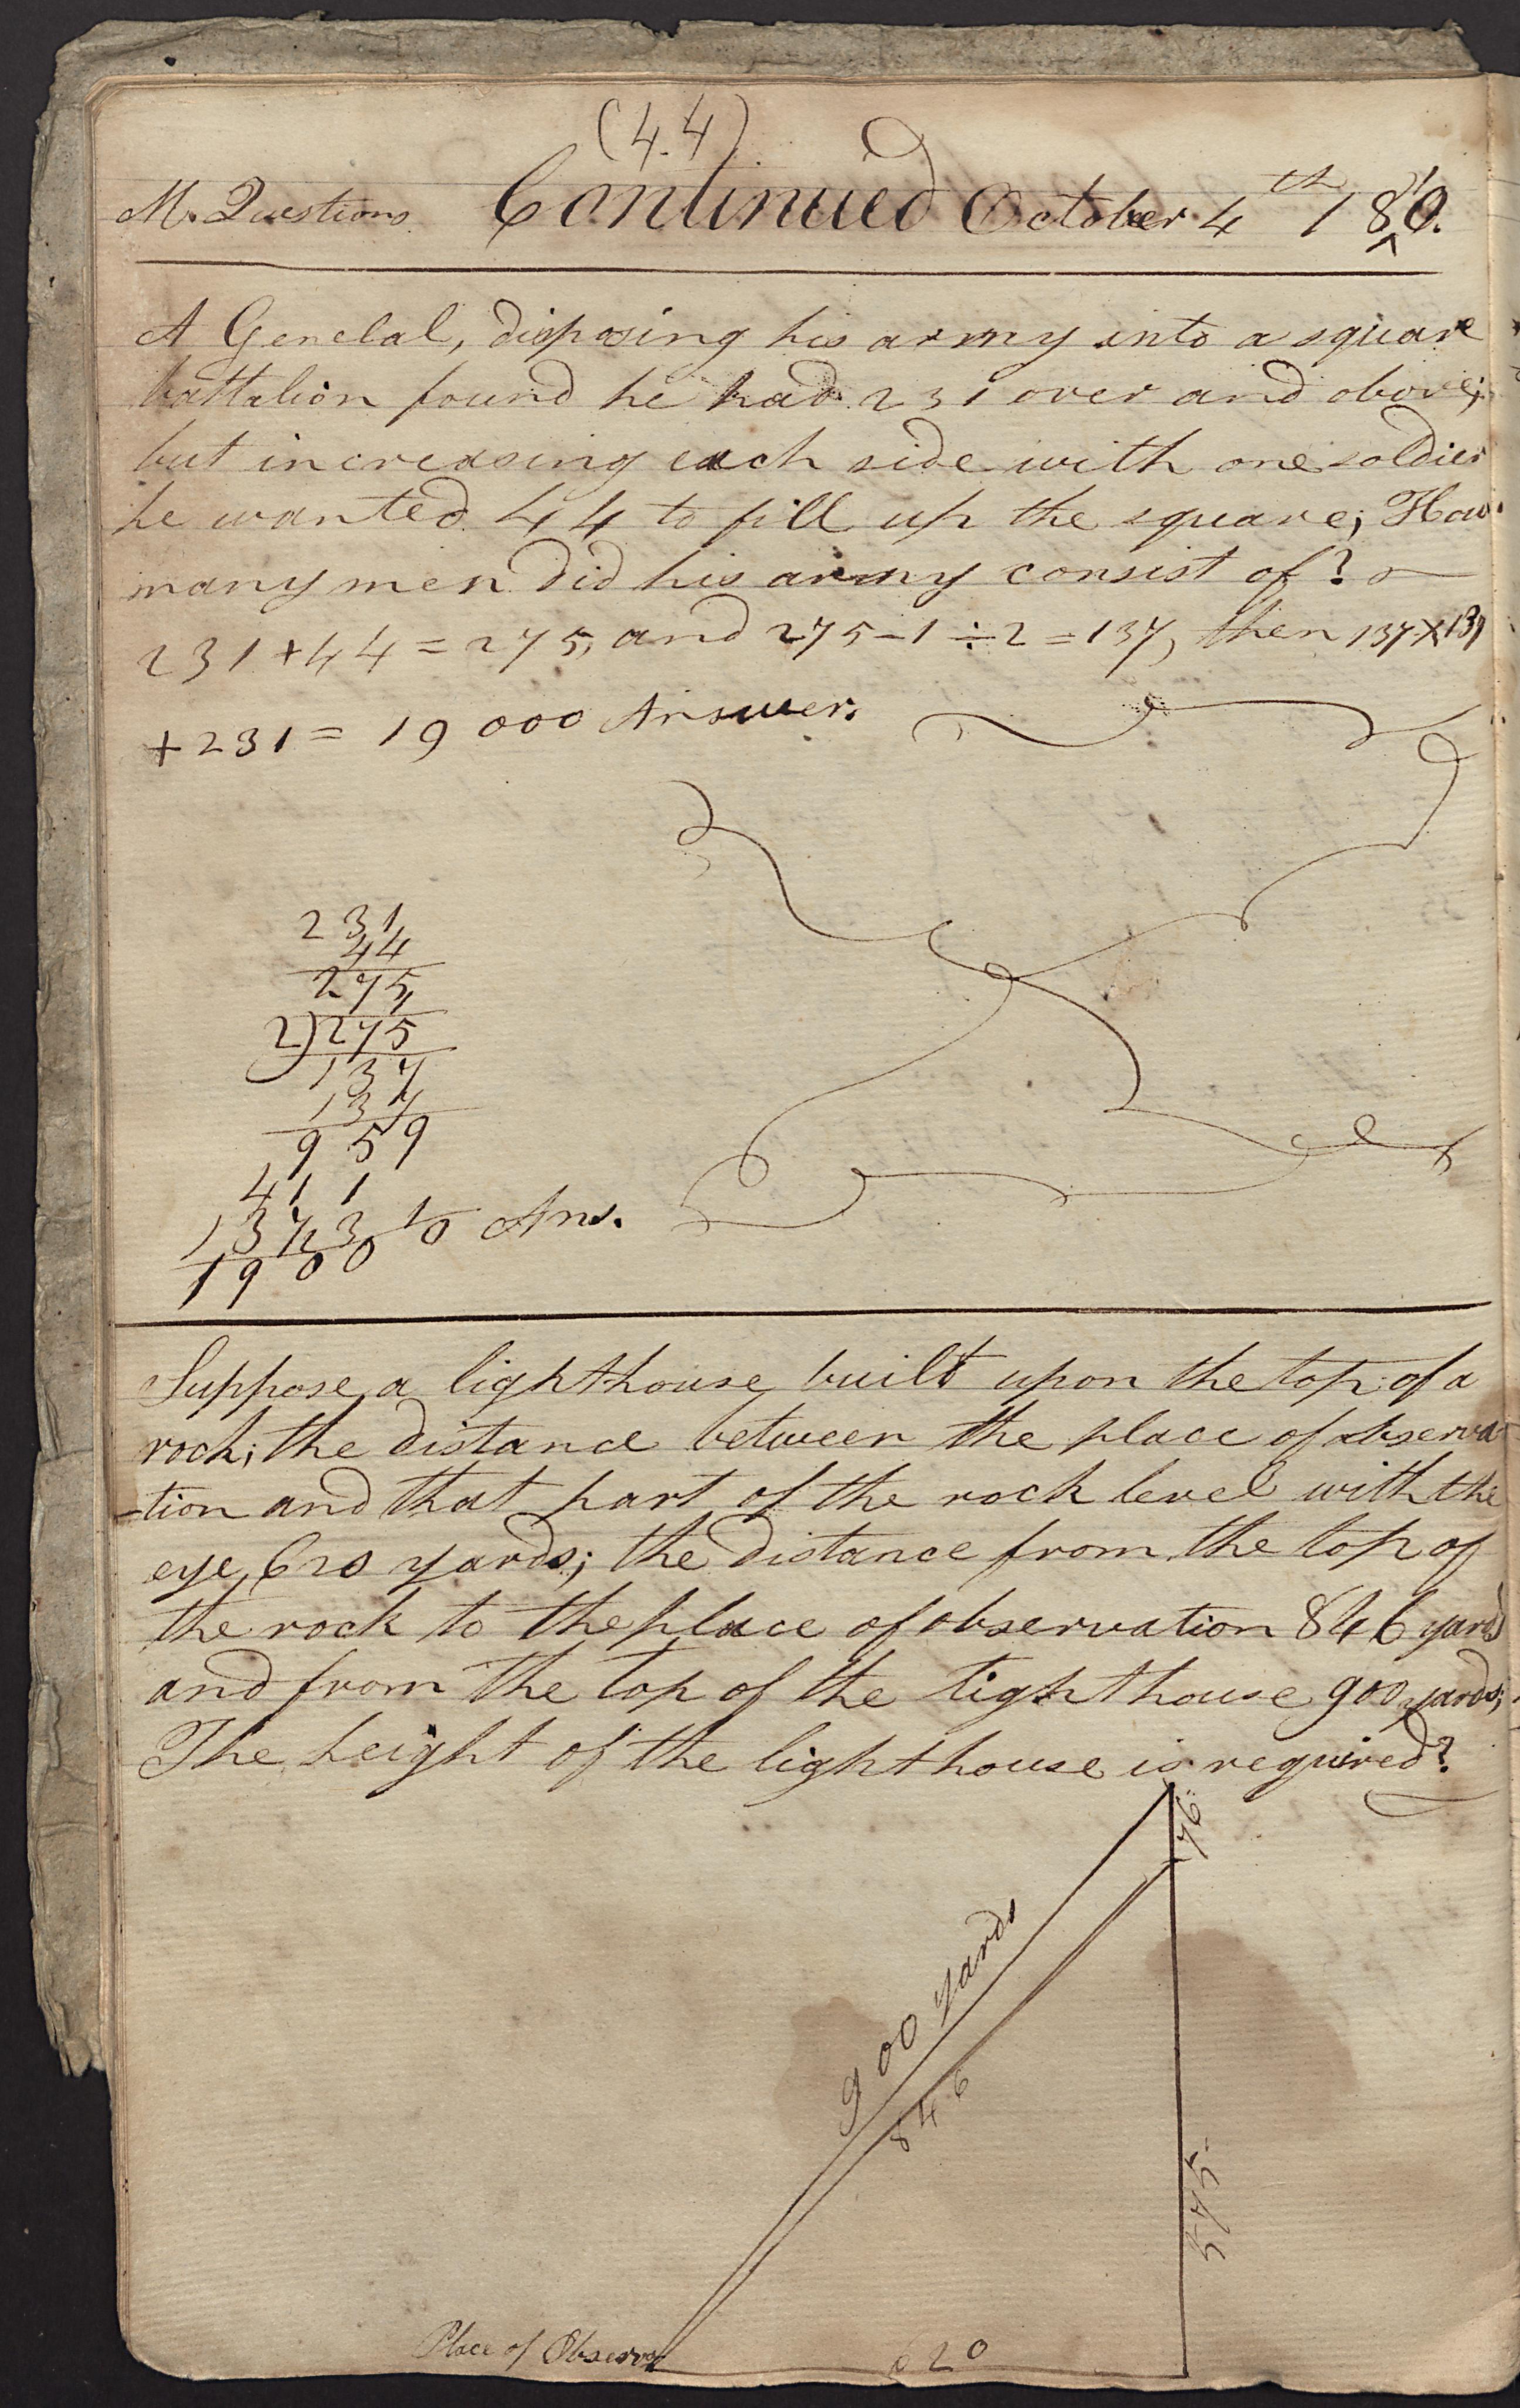 (44)
M. Questions. Continued October 4th 18^10.
A Genelal, disposing his army into a square
battalion found he had 231 over and obove;
but increasing each side with one soldier
he wanted 44 to fill up the square; How
many men did his army consist of?
231+44=275, and 275-1÷2=137, then 137×137
+231= 19000 Answer.
231
44
275
2)275
137
137
959
411
137
19000 Ans.
Suppose a lighthouse built upon the top of a
rock; the distance between the place of observa
-tion and that part of the rock level with the
eye 620 yards; the distance from the top of
the rock to the place of observation 846 yards
and from the top of the lighthouse 900 yards;
The height of the lighthouse is required?
76
900 yards
846
575
Place of Observa
620